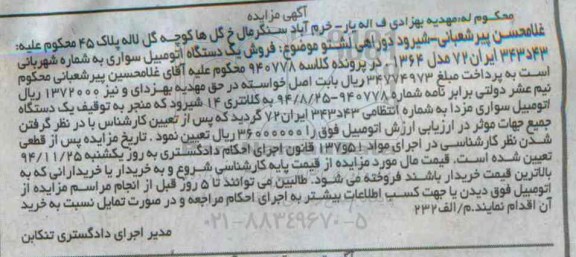 آگهی مزایده
محکوم له:مهدیه بهزادی ف اله یار- خرم آباد سنگرمال خ گل ها کوچه گل لاله پلاک ۴۵ محکوم علیه:
غلامحسین پیرشعبانی-شیرود دوراهی لشتو موضوع: فروش یک دستگاه اتومبیل سواری به شماره شهربانی
۴۳د۳۴۳ ایران۷۲ مدل ۱۳۶۴. در پرونده کلاسه ۹۴۰۷۷۸ محکوم علیه آقای غلامحسین پیرشعبانی محکوم
است به پرداخت مبلغ ۳۴۷۷۴۹۷۳ ریال بابت اصل خواسته در حق مهدیه بهزدای و نیز ۱۳۷۲۰۰۰ ریال
نیم عشر دولتی برابر نامه شماره ۹۴۰۷۷۸-۹۴/۸/۲۵ به کلانتری ۱۴ شیرود که منجر به توقیف یک دستگاه
اتومبیل سواری مزدا به شماره انتظامی ۴۳د۳۴۳ ایران۷۲ گردید که پس از تعیین کارشناس با در نظر گرفتن
جمیع جهات موثر در ارزیابی ارزش اتومبیل فوق را ۳۶۰۰۰۰۰۰ ریال تعیین نمود . تاریخ مزایده پس از قطعی
شدن نظر کارشناسی در اجرای مواد ۵۱و۱۳۷ قانون اجرای احکام دادگستری به روز یکشنبه ۹۴/۱۱/۲۵
تعیین شده است. قیمت مال مورد مزایده از قیمت پایه کارشناسی شروع و به خریدار یا خریدارانی که به
بالاترین قیمت خریدار باشند فروخته می شود. طالبین می توانند تا ۵ روز قبل از انجام مراسم مزایده از
اتومبیل فوق دیدن یا جهت کسب اطلاعات بیشتر به اجرای احکام مراجعه و در صورت تمایل نسبت به خرید
آن اقدام نمایند.م/الف۲۳۲
۰۲۱-۸۸۳۴۹۶۷۰-۵
مدیر اجرای دادگستری تنکابن